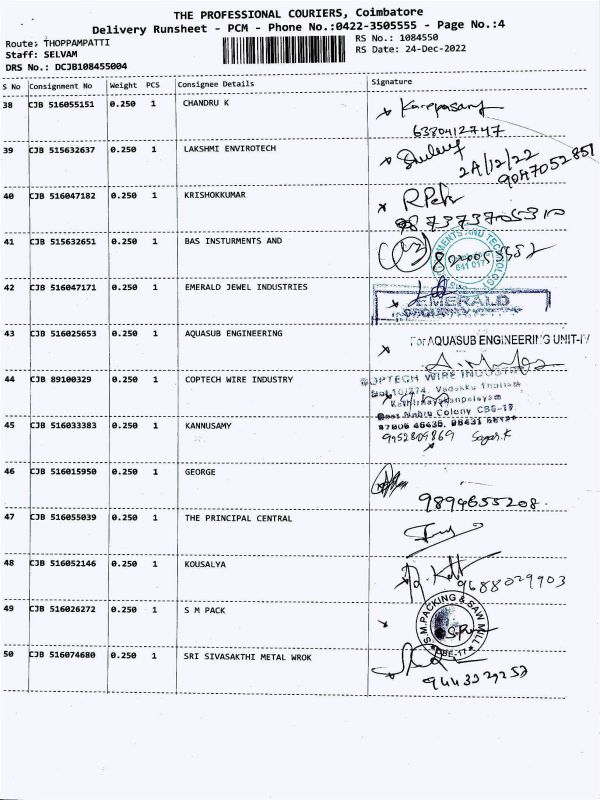 THE PROFESSIONAL COURIERS, Coimbatore
Delivery Runsheet - PCM - Phone No.:0422-3505555 - Page No.:4
Route: THOPPAMPATTI
RS No.: 1084550
Staff: SELVAM
RS Date: 24-Dec-2022
DRS No.: DCJB108455004
S No Consignment No Weight PCS Consignee Details Signature
38 CJB 516055151 0.250 1 CHANDRU K
6380412747
39 CJB 515632637 0.250 1 LAKSHMI ENVIROTECH
2A/12/22
9047052851
40 CJB 516047182 0.250 1 KRISHOKKUMAR
41 CJB 515632651 0.250 1 BAS INSTURMENTS AND
42 CJB 516047171 0.250 1 EMERALD JEWEL INDUSTRIES
EMERALD
43 CJB 516025653 0.250 1 AQUASUB ENGINEERING
For AQUASUB ENGINEERING UNIT-IV
44 CJB 89100329 0.250 1 COPTECH WIRE INDUSTRY
COPTECH WIRE INDUSTRY
45 CJB 516033383 0.250 1 KANNUSAMY
9952809869 Sagar.K
46 CJB 516015950 0.250 1 GEORGE
9894655208
47 CJB 516055039 0.250 1 THE PRINCIPAL CENTRAL
48 CJB 516052146 0.250 1 KOUSALYA
9688029903
49 CJB 516026272 0.250 1 S M PACK
S.M.PACKING & SAW MILL
CBE-17
50 CJB 516074680 0.250 1 SRI SIVASAKTHI METAL WROK